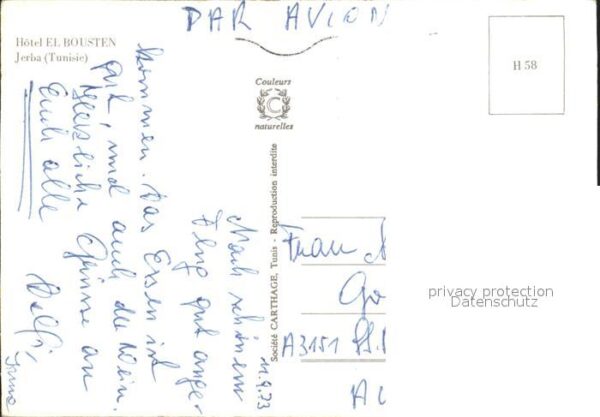 PAR AVION
Hôtel EL BOUSTEN
Jerba (Tunisie)
Couleurs
C
naturelles
H 58
Société CARTHAGE, Tunis - Reproduction interdite
11.9.73
Nach schönem
Flug gut ange-
kommen. Das Essen ist
gut, und auch der Wein.
Herzliche Grüsse an
Euch alle
Frau
A3151
privacy protection
Datenschutz